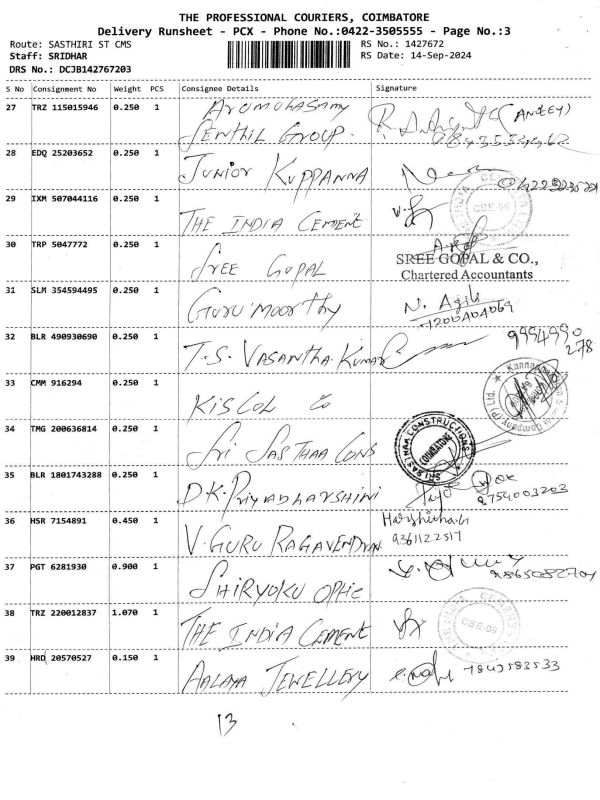 THE PROFESSIONAL COURIERS, COIMBATORE
Delivery Runsheet - PCX - Phone No.:0422-3505555 - Page No.:3
Route: SASTHIRI ST CMS RS No.: 1427672
Staff: SRIDHAR RS Date: 14-Sep-2024
DRS No.: DCJB142767203
S No Consignment No Weight PCS Consignee Details Signature
27 TRZ 115015946 0.250 1 Arumugasamy
SENTHIL GROUP.
28 EDQ 25203652 0.250 1 JUNIOR KUPPANNA
29 IXM 507044116 0.250 1 THE INDIA CEMENT
30 TRP 5047772 0.250 1 SREE GOPAL
SREE GOPAL & CO.,
Chartered Accountants
31 SLM 354594495 0.250 1 GURU MOORTHY
32 BLR 490930690 0.250 1 T.S. VASANTHA KUMAR
9994990
278
33 CMM 916294 0.250 1 KISCOL Co
34 TMG 200636814 0.250 1 SRI SASTHAA CONS
SRI SASTHAM CONSTRUCTIONS
COIMBATORE
35 BLR 1801743288 0.250 1 D.K. PRIYADHARSHINI
8754003203
36 HSR 7154891 0.450 1 V. GURU RAGAVENDRAN
9361122517
37 PGT 6281930 0.900 1 SHIRYOKU OPHC
38 TRZ 220012837 1.070 1 THE INDIA CEMENT
39 HRD 20570527 0.150 1 AALAYA JEWELLERY
7845583533
13